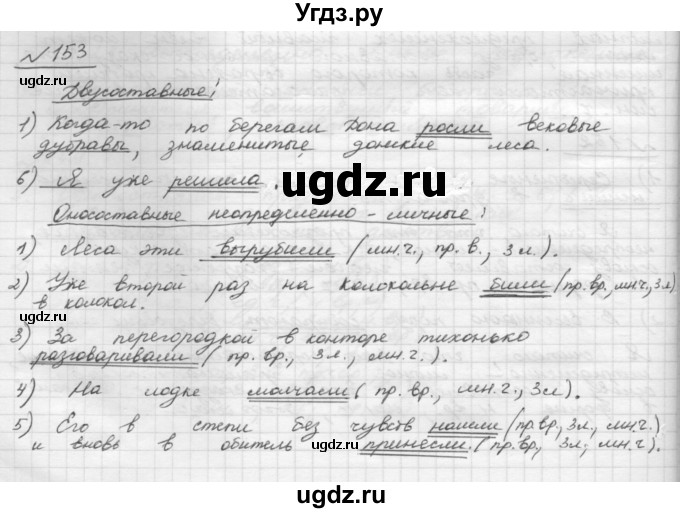 Угдз.ру
№153
ugdz.ru
ugdz.ru
Двусоставные:
1) Когда-то по берегам Дона росли вековые
дубравы, знаменитые донские леса.
6) Я уже решила.
ugdz.ru
ugdz.ru
Односоставные неопределенно-личные:
1) Леса эти вырубили (мн.ч., пр.в., 3л.).
2) Уже второй раз на колокольне били (пр.вр., мн.ч., 3л)
в колокол.
ugdz.ru
3) За перегородкой в конторе тихонько
разговаривали (пр.вр., 3л., мн.ч.).
ugdz.ru
4) На лодке молчали (пр.вр., мн.ч., 3л).
5) Его в степи без чувств нашли (пр.вр., 3л., мн.ч.)
и вновь в обитель принесли. (пр.вр, 3л, мн.ч).
ugdz.ru
ugdz.ru
ugdz.ru